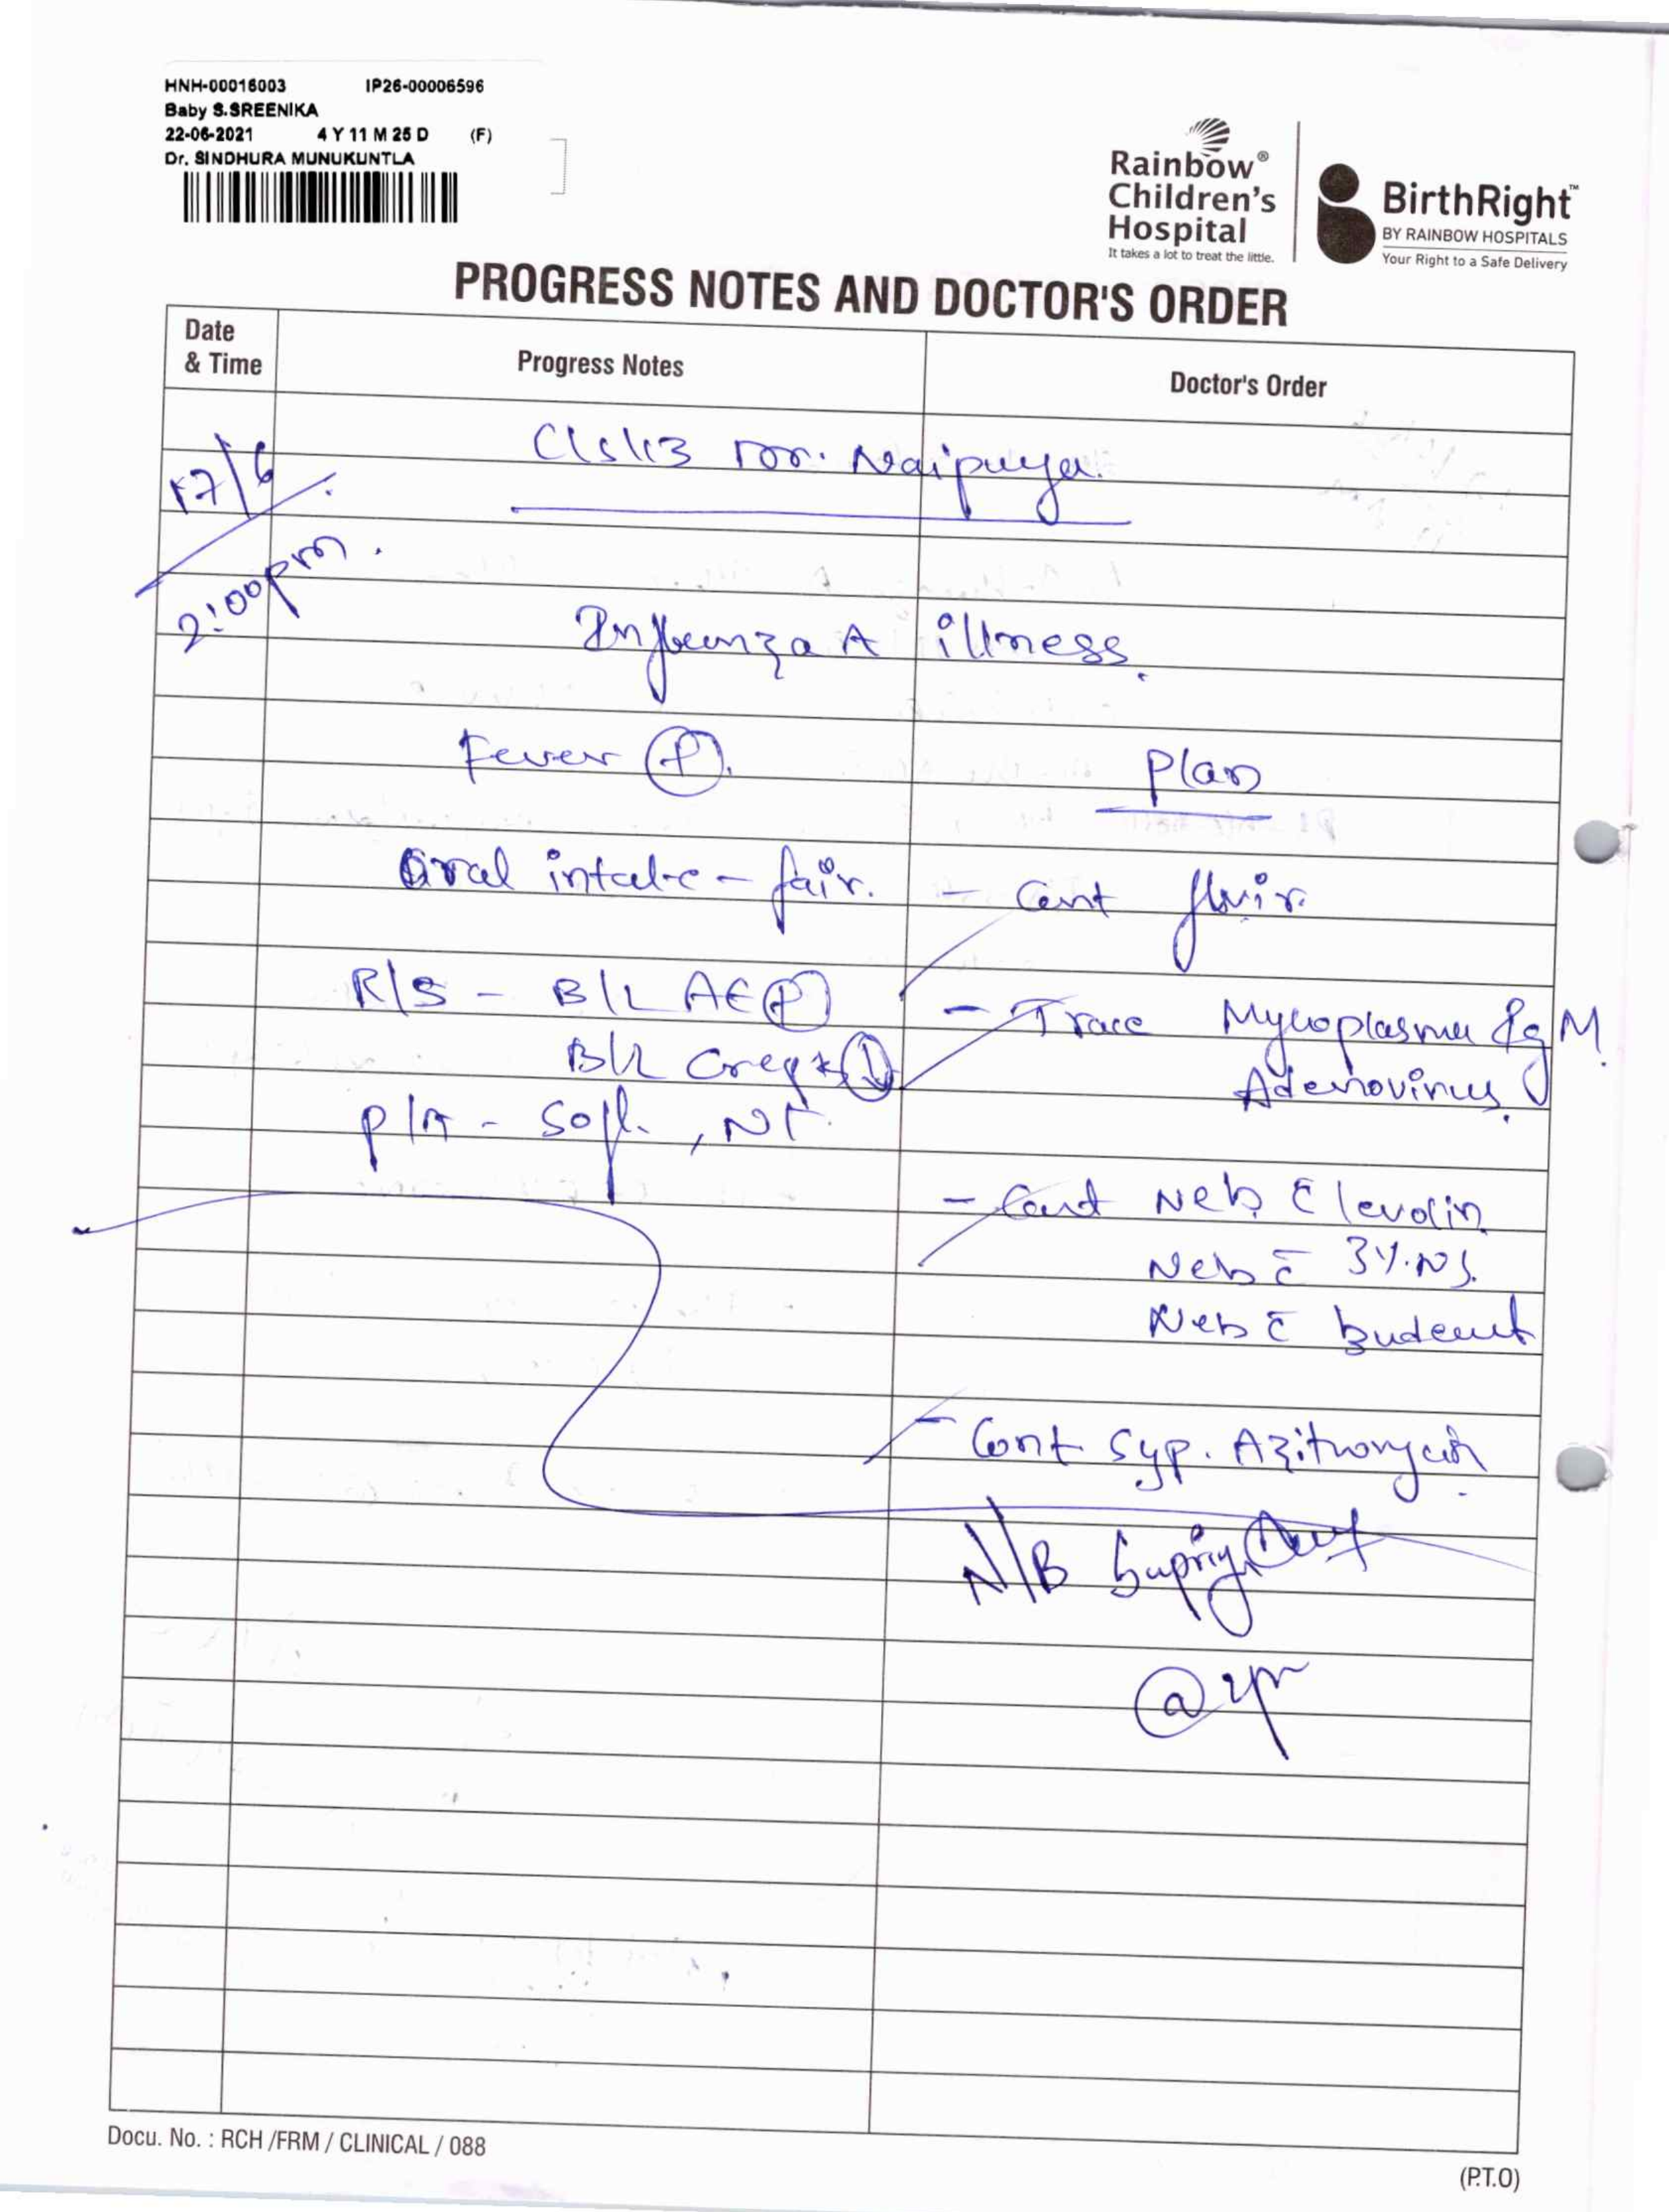 HNH-00016003 IP26-00006596
Baby S.SREENIKA
22-06-2021 4 Y 11 M 25 D (F)
Dr. SINDHURA MUNUKUNTLA
Rainbow®
Children's
Hospital
It takes a lot to treat the little.
BirthRight™
BY RAINBOW HOSPITALS
Your Right to a Safe Delivery
PROGRESS NOTES AND DOCTOR'S ORDER
Date & Time
Progress Notes
Doctor's Order
17/6
2:00pm.
Dr. Naipunya.
Influenza A illness.
Fever (P).
Oral intake - fair.
R/S - B/L AE (P)
B/L creps
P/A - Soft, NT.
Plan
- Cont fluvir.
- Trace Mycoplasma IgM.
Adenovirus.
- Cont Neb c̄ levolin
Neb c̄ 3% NS.
Neb c̄ budecort
- Cont Syp. Azithromycin.
N/B Supriya
Docu. No. : RCH /FRM / CLINICAL / 088
(P.T.O)